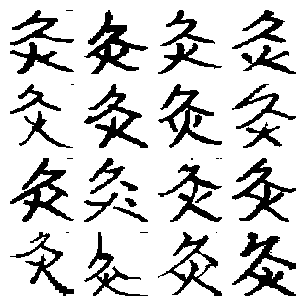 灸灸灸灸
灸灸灸灸
灸灸灸灸
灸灸灸灸